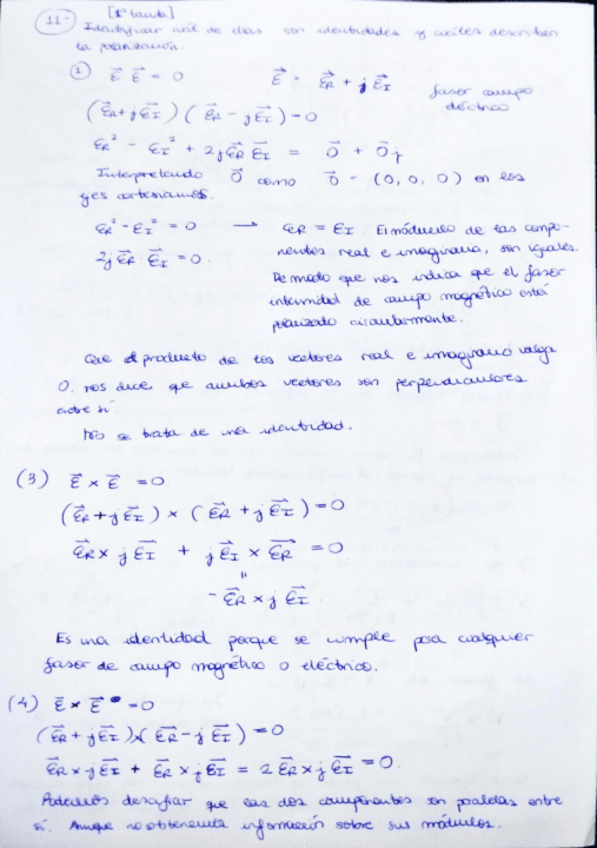 11- [1ª tanda]
Identificar cuál de ellas son identidades y cuáles describen
la polarización.
① E⃗ E⃗ = 0      E⃗ = E⃗R + j E⃗I    fasor campo
eléctrico
(E⃗R + jE⃗I) (E⃗R - jE⃗I) = 0
ER² - EI² + 2j E⃗R E⃗I = 0⃗ + 0⃗j
Interpretando 0⃗ como 0⃗ = (0, 0, 0) en los
ejes cartesianos.
ER² - EI² = 0 → ER = EI. El módulo de las compo-
2j E⃗R · E⃗I = 0.    nentes real e imaginaria, son iguales.
De modo que nos indica que el fasor
intensidad de campo magnético está
polarizado circularmente.
Que el producto de los vectores real e imaginario valga
0, nos dice que ambos vectores son perpendiculares
entre sí.
No se trata de una identidad.
(3) E⃗ × E⃗ = 0.
(E⃗R + jE⃗I) × (E⃗R + jE⃗I) = 0
E⃗R × j E⃗I + j E⃗I × E⃗R = 0
"
- E⃗R × j E⃗I.
Es una identidad porque se cumple para cualquier
fasor de campo magnético o eléctrico.
(4) E⃗ × E⃗* = 0
(E⃗R + jE⃗I) × (E⃗R - jE⃗I) = 0
E⃗R × -jE⃗I + E⃗R × jE⃗I = 2 E⃗R × j E⃗I = 0.
Podemos que las dos componentes son paralelas entre
sí. Aunque no información sobre sus módulos.